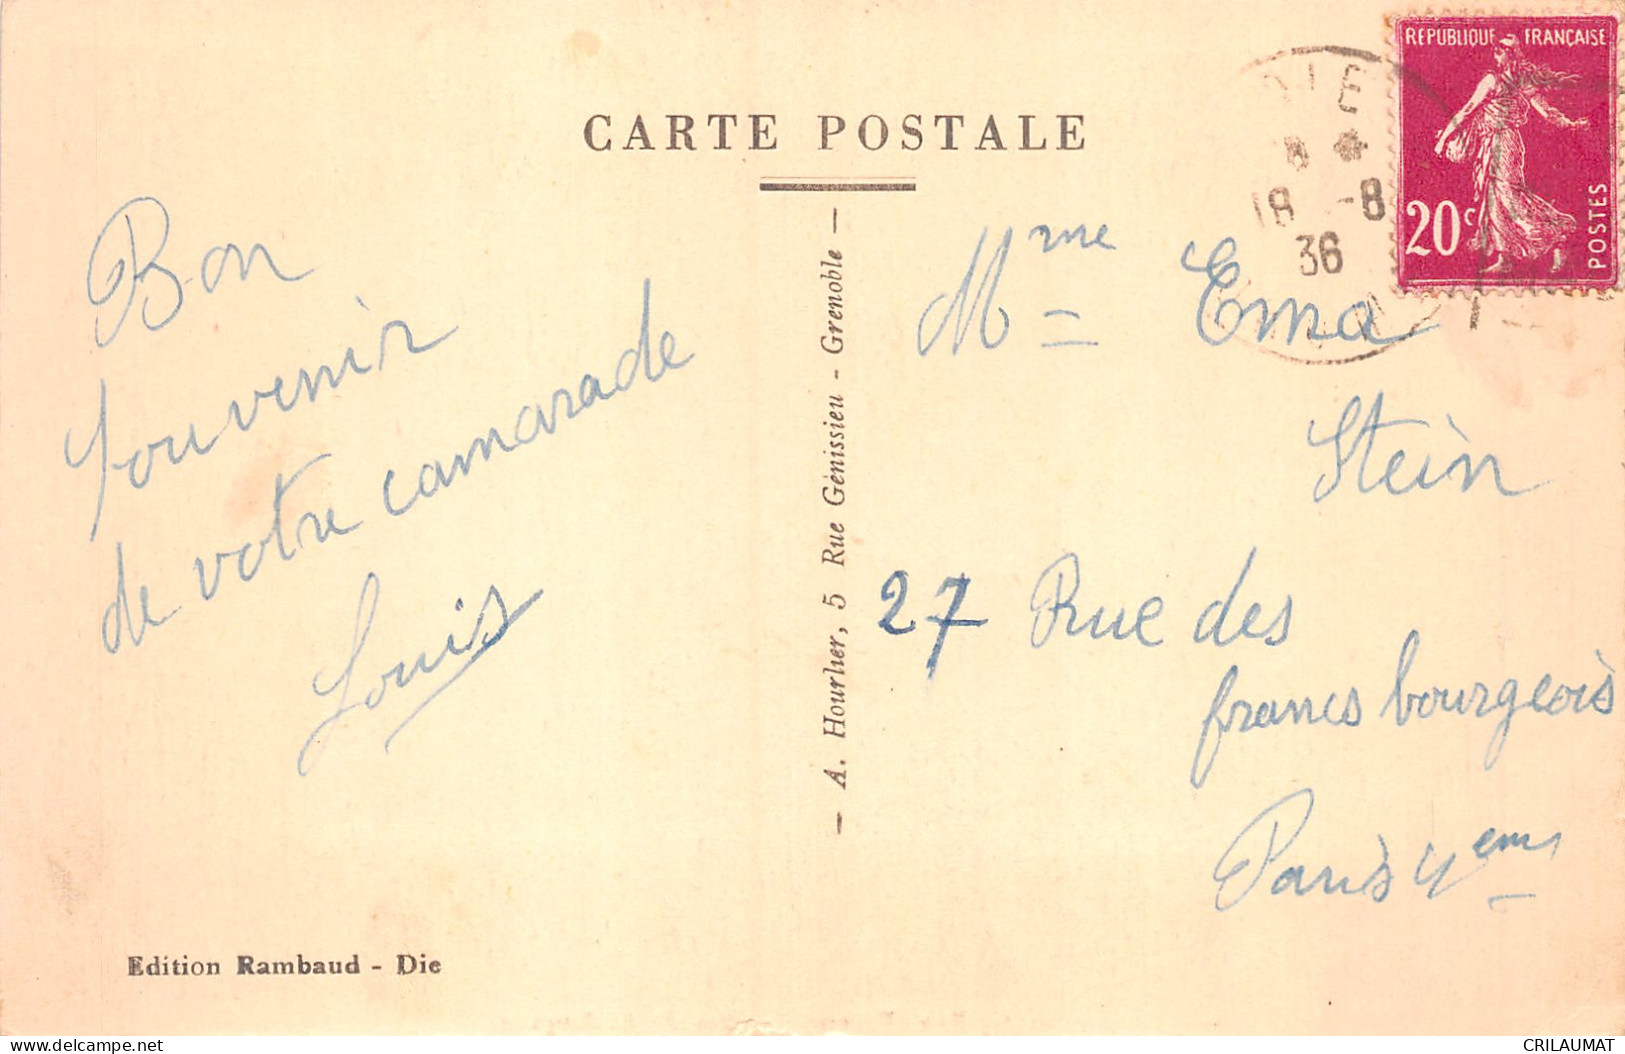 CARTE POSTALE
Bon
souvenir
de votre camarade
Louis
Edition Rambaud - Die
— A. Hourlier, 5 Rue Génissieu - Grenoble —
RÉPUBLIQUE FRANÇAISE
20c
POSTES
DIE
18 -8
36
Mme Ema
Stein
27 Rue des
francs bourgeois
Paris 4em
delcampe.net
CRILAUMAT